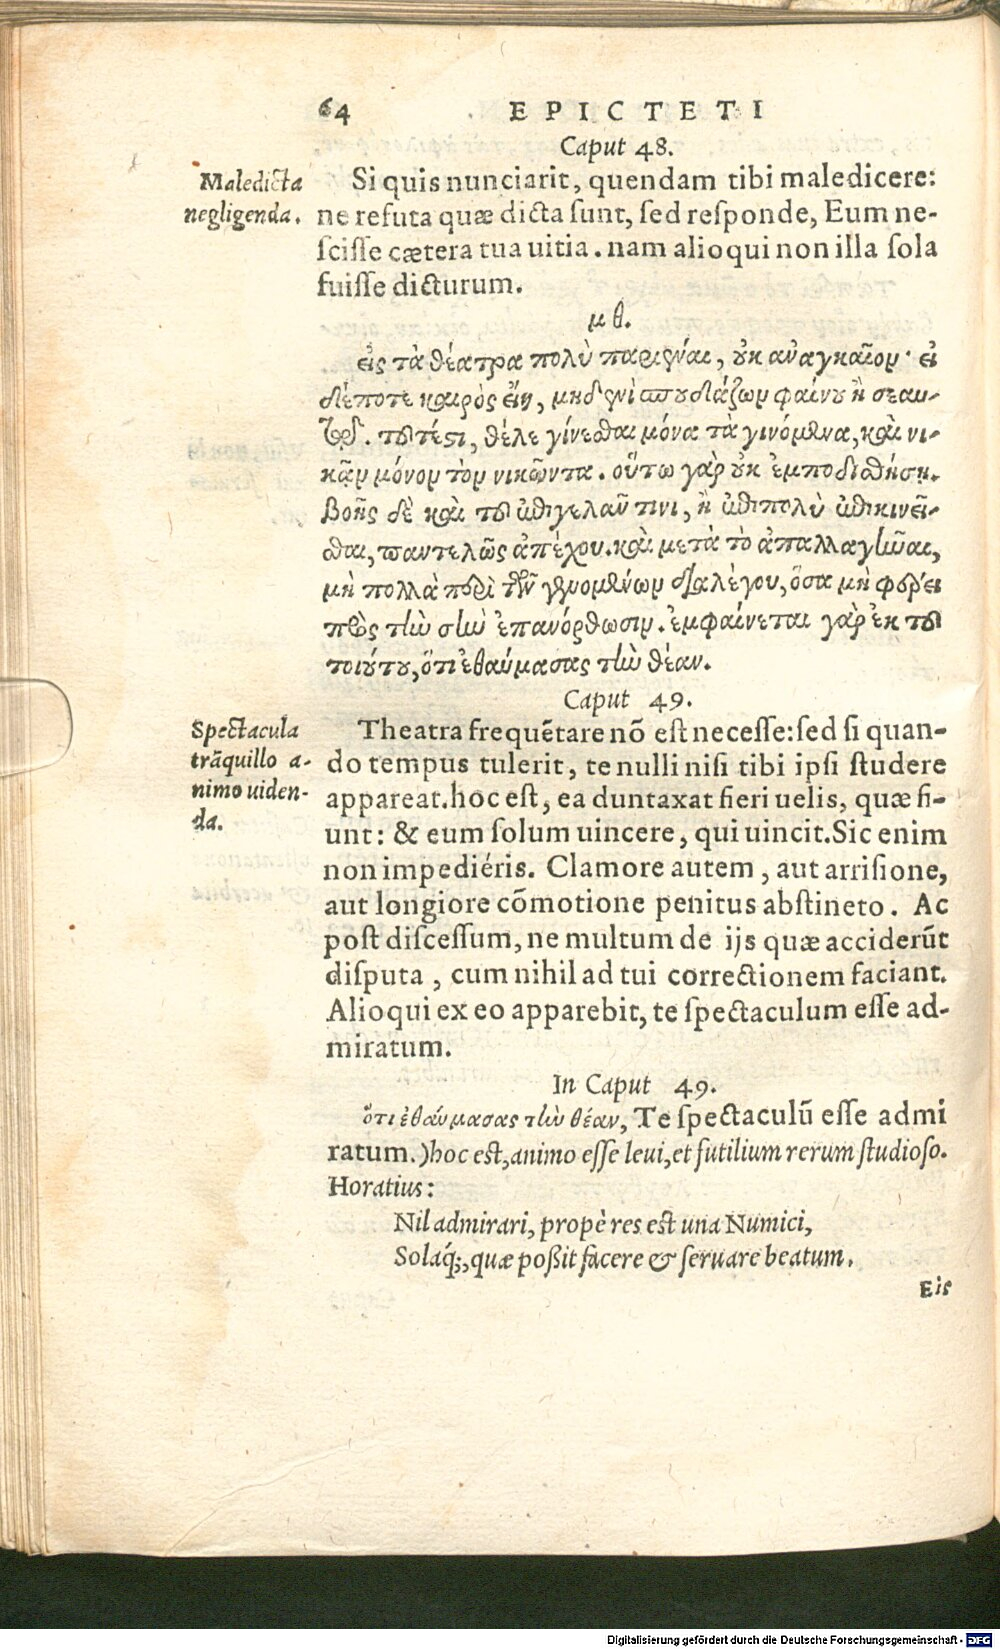 64 EPICTETI
Caput 48.
Maledicta
negligenda.
Si quis nunciarit, quendam tibi maledicere:
ne refuta quæ dicta sunt, sed responde, Eum ne-
scisse cætera tua uitia. nam alioqui non illa sola
fuisse dicturum.
μθ.
εἰς τὰ θέατρα πολὺ παριέναι, οὐκ ἀναγκαῖον· εἰ
δέ ποτε καιρὸς εἴη, μηδενὶ σπουδάζων φαίνου ἢ σεαυ-
τῷ. τουτέστι, θέλε γίνεσθαι μόνα τὰ γινόμενα, καὶ νι-
κᾶν μόνον τὸν νικῶντα. οὕτω γὰρ οὐκ ἐμποδισθήσῃ.
βοῆς δὲ καὶ τοῦ ἐπιγελᾶν τινι, ἢ ἐπιπολὺ ἐπικινεῖ-
σθαι, παντελῶς ἀπέχου. καὶ μετὰ τὸ ἀπαλλαγῆναι,
μὴ πολλὰ περὶ τῶν γενομένων διαλέγου, ὅσα μὴ φέρει
πρὸς τὴν σὴν ἐπανόρθωσιν. ἐμφαίνεται γὰρ ἐκ τοῦ
τοιούτου, ὅτι ἐθαύμασας τὴν θέαν.
Caput 49.
Spectacula
trāquillo a-
nimo uiden-
da.
Theatra frequētare nō est necesse: sed si quan-
do tempus tulerit, te nulli nisi tibi ipsi studere
appareat. hoc est, ea duntaxat fieri uelis, quæ fi-
unt: & eum solum uincere, qui uincit. Sic enim
non impediéris. Clamore autem, aut arrisione,
aut longiore cōmotione penitus abstineto. Ac
post discessum, ne multum de ijs quæ acciderūt
disputa, cum nihil ad tui correctionem faciant.
Alioqui ex eo apparebit, te spectaculum esse ad-
miratum.
In Caput 49.
ὅτι ἐθαύμασας τὴν θέαν, Te spectaculū esse admi
ratum.) hoc est, animo esse leui, et futilium rerum studioso.
Horatius:
Nil admirari, propè res est una Numici,
Solaq́;, quæ poßit facere & seruare beatum.
Eis
Digitalisierung gefördert durch die Deutsche Forschungsgemeinschaft - DFG